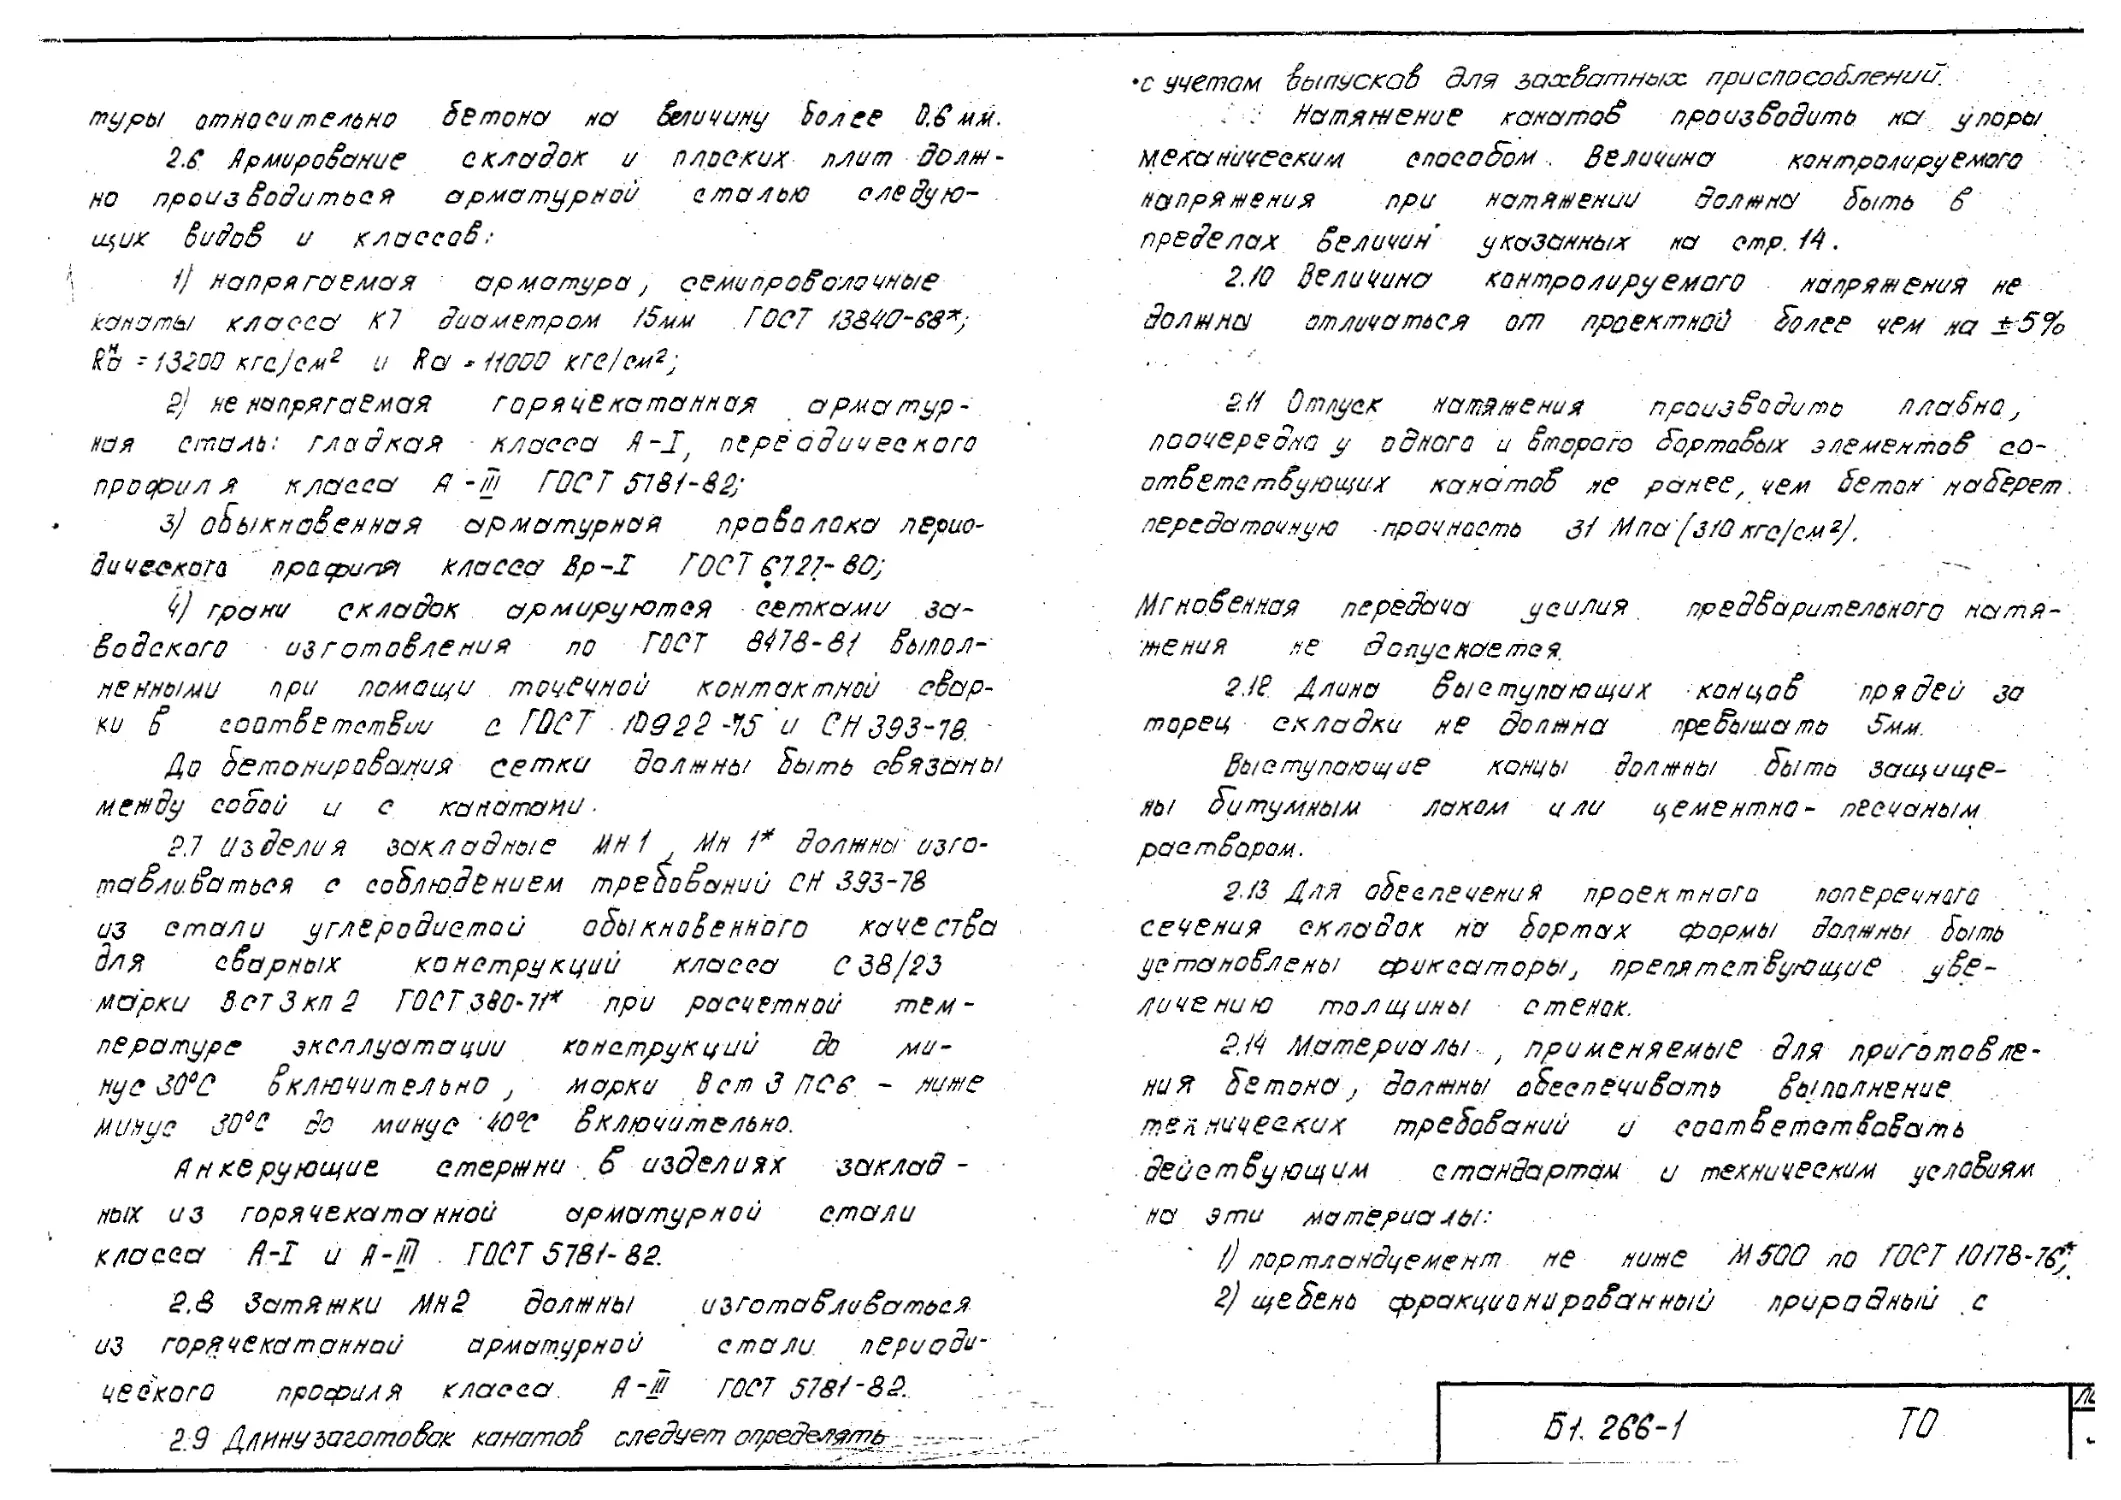 туры относительно бетона на величину более 0.6 мм.
2.6 Армирование складок и плоских плит долж-
но производиться арматурной сталью следую-
щих видов и классов:
1) напрягаемая арматура, семипроволочные
канаты класса К7 диаметром 15мм ГОСТ 13840-68*;
Rан = 13200 кгс/см² и Rа = 11000 кгс/см²;
2) не напрягаемая горячекатанная арматур-
ная сталь: гладкая класса А-I, переодического
профиля класса А-III ГОСТ 5781-82;
3) обыкновенная арматурная проволока перио-
дического профиля класса Вр-I ГОСТ 6727-80;
4) грани складок армируются сетками за-
водского изготовления по ГОСТ 8478-81 выпол-
ненными при помощи точечной контактной свар-
ки в соответствии с ГОСТ 10922-75 и СН 393-78.
До бетонирования сетки должны быть связаны
между собой и с канатами.
2.7 Изделия закладные МН1, Мн 1* должны изго-
тавливаться с соблюдением требований СН 393-78
из стали углеродистой обыкновенного качества
для сварных конструкций класса С 38/23
марки ВСт3кп2 ГОСТ 380-71* при расчетной тем-
пературе эксплуатации конструкций до ми-
нус 30°С включительно, марки Вст 3 ПС6 - ниже
минус 30°С до минус 40°С включительно.
Анкерующие стержни в изделиях заклад-
ных из горячекатанной арматурной стали
класса А-I и А-III ГОСТ 5781-82.
2.8 Затяжки МН2 должны изготавливаться
из горячекатанной арматурной стали периоди-
ческого профиля класса А-III ГОСТ 5781-82.
2.9 Длину заготовок канатов следует определять
с учетом выпусков для захватных приспособлений.
Натяжение канатов производить на упоры
механическим способом. Величина контролируемого
напряжения при натяжении должна быть в
пределах величин указанных на стр. 14.
2.10 Величина контролируемого напряжения не
должна отличаться от проектной более чем на ±5%
2.11 Отпуск натяжения производить плавно,
поочередно у одного и второго бортовых элементов со-
ответствующих канатов не ранее, чем бетон наберет
передаточную прочность 31 Мпа (310 кгс/см²).
Мгновенная передача усилия предварительного натя-
жения не допускается.
2.12. Длина выступающих концов прядей за
торец складки не должна превышать 5мм.
Выступающие концы должны быть защище-
ны битумным лаком или цементно-песчаным
раствором.
2.13 Для обеспечения проектного поперечного
сечения складок на бортах формы должны быть
установлены фиксаторы, препятствующие уве-
личению толщины стенок.
2.14 Материалы, применяемые для приготовле-
ния бетона, должны обеспечивать выполнение
технических требований и соответствовать
действующим стандартам и техническим условиям
на эти материалы:
1) портландцемент не ниже М500 по ГОСТ 10178-76*;
2) щебень фракционированный природный с
Б1. 266-1 ТО